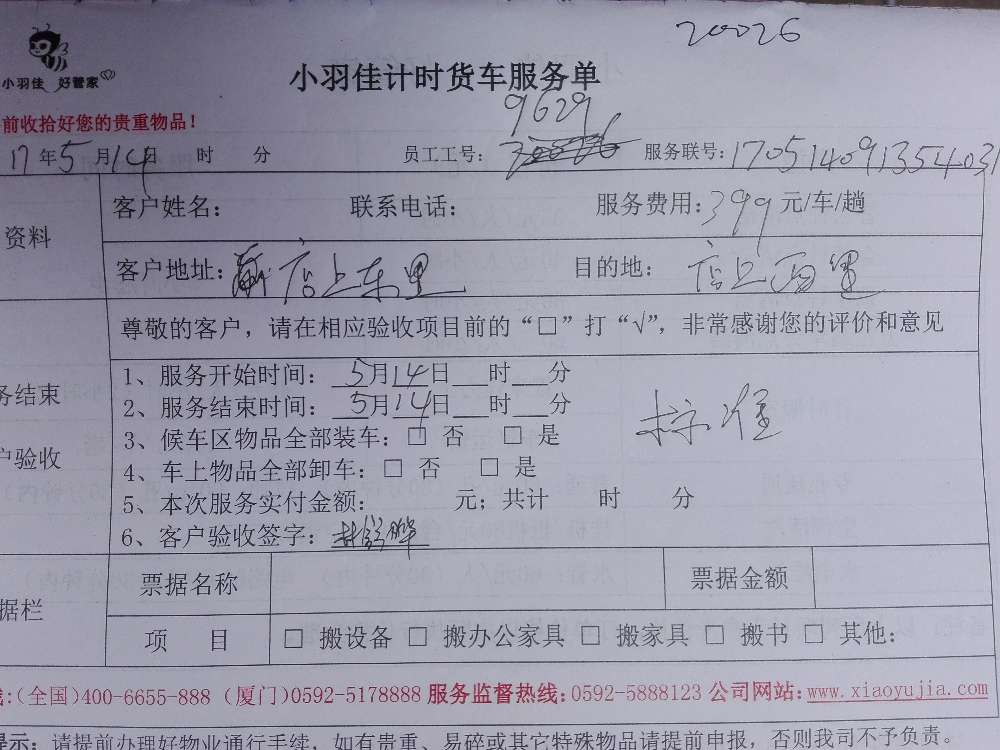 20026
小羽佳 好管家
小羽佳计时货车服务单
9629
前收拾好您的贵重物品!
17年5月14日 时 分 员工工号: 服务联号:170514091354031
资料
客户姓名: 联系电话: 服务费用:399元/车/趟
客户地址: 店上东里 目的地: 店上西里
尊敬的客户，请在相应验收项目前的“□”打“√”，非常感谢您的评价和意见
务结束
户验收
1、服务开始时间: 5月14日___时___分
2、服务结束时间: 5月14日___时___分
3、候车区物品全部装车:□ 否 □ 是
4、车上物品全部卸车:□ 否 □ 是
5、本次服务实付金额: 元;共计 时 分
6、客户验收签字:
据栏
票据名称 票据金额
项 目 □ 搬设备 □ 搬办公家具 □ 搬家具 □ 搬书 □ 其他:
:(全国)400-6655-888 (厦门)0592-5178888 服务监督热线:0592-5888123 公司网站:www.xiaoyujia.com
提示: 请提前办理好物业通行手续，如有贵重、易碎或其它特殊物品请提前申报，否则我司不予负责。